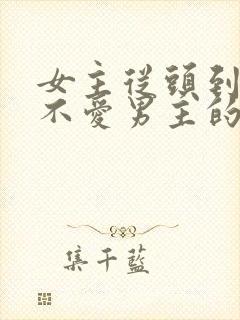 女主從頭到
不愛男主的
集千藍